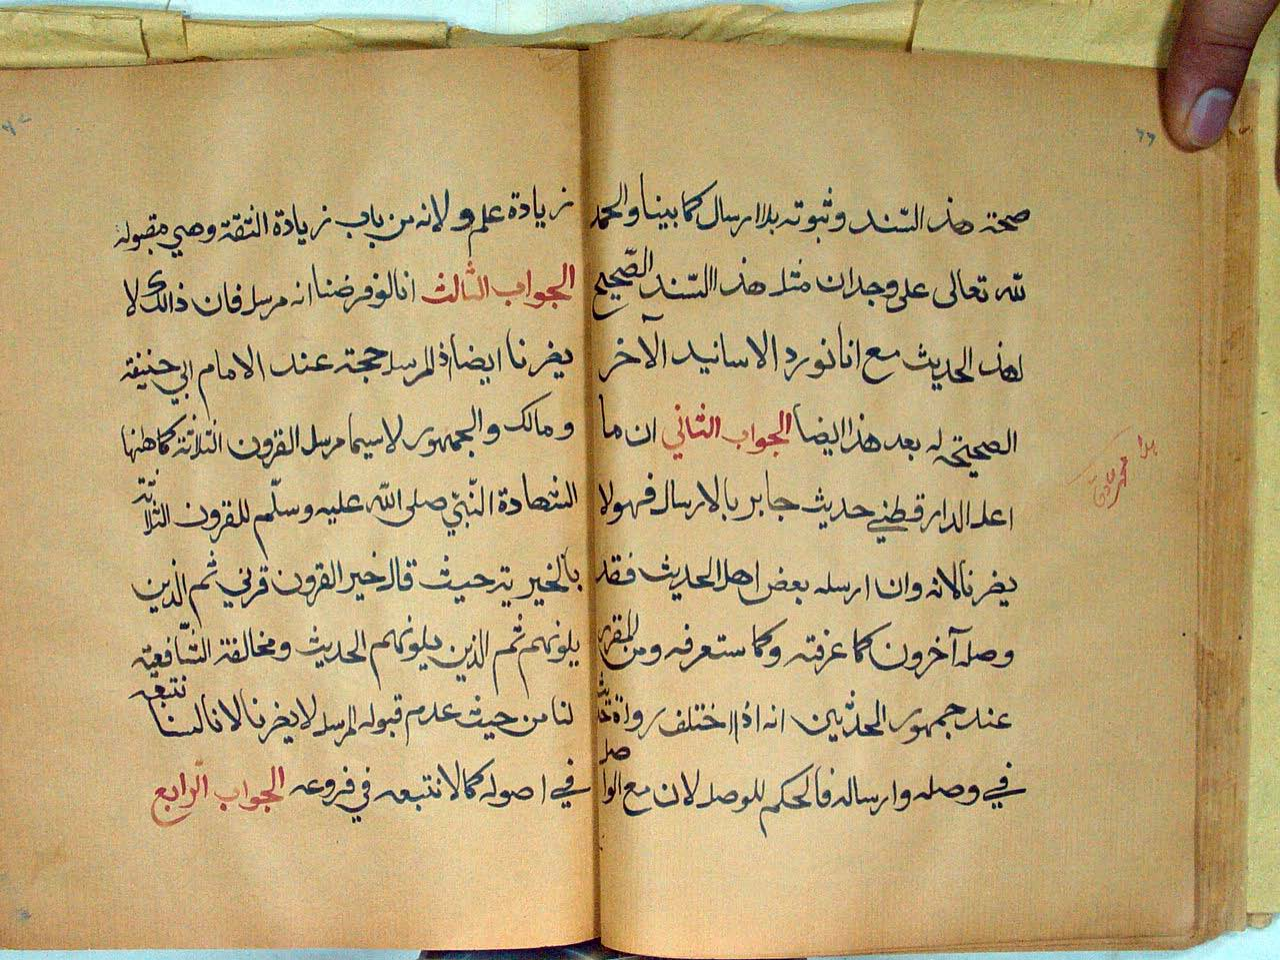 ٦٦
صحة هذا السند وثبوته بلا ارسال كما بينا والحمد
لله تعالى على وجدان مثل هذا السند الصّحيح
لهذا الحديث مع انا نورد الاسانيد الآخر
الصحيحة له بعد هذا ايضا الجواب الثاني ان ما
اعل الدارقطني حديث جابر بالارسال فهو لا
يضرنا لانه وان ارسله بعض اهل الحديث فقد
وصله آخرون كما عرفته وكما ستعرفه ومن المقرر
عند جمهور المحدّثين انه اذا اختلف رواة حديث
في وصله وارساله فالحكم للوصل لان مع الواصل
زيادة علم ولانه من باب زيادة الثقة وهي مقبولة
الجواب الثالث انا لو فرضنا انه مرسل فان ذالك لا
يضرنا ايضا اذ المرسل حجة عند الامام ابي حنيفة
ومالك والجمهور لاسيما مرسل القرون الثلاثة كما ههنا
الشهادة النّبيّ صلى الله عليه وسلّم للقرون الثلاثة
بالخيرية حيث قال خير القرون قرني ثم الذين
يلونهم ثم الذين يلونهم الحديث ومخالفة الشّافعيّة
لنا من حيث عدم قبوله المرسل لا يضرنا لانا لسنا نتبعه
في اصوله كما لا نتبعه في فروعه الجواب الرابع